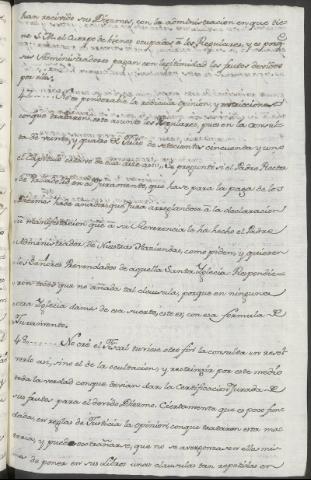 han recivido sus Diezmos, con la administracion en que tie-
ne S.M. el cuerpo de bienes ocupados á los Regulares, y es pre-
sus Administradores pagan con legitimidad los justos devidos
por ellas.
No es ponderable la opinion, y
con que trataron este asunto los Regulares, pues en la consul-
ta de veinte, y quatro de Julio de setecientos cincuenta y uno
el Capitulo octavo de que se preguntó si el Padre Rector
de en el Juramento, que hace para la paga de los
Diezmos ha de añadir que jura arreglandose á la declaracion
ú manifestacion que á su Reverencia la ha hecho el Padre
Administrador de Nuestras Haciendas, como piden, y quieren
los Señores Prevendados de aquella Santa Iglesia. Respondieron
todos que no añada tal clausula, porque en ninguna
otra Iglesia damos de esa suerte, esto es, con esa formula de
Juramento.
No creé el Fiscal tuviese otro fin la consulta en resol-
verlo asi, sino el de la ocultacion, y restringir por este medio
toda la verdad con que devian dar la Certificacion Jurada de
sus frutos para el devido Diezmo. Ciertamente que es poco fun-
dada, en reglas de Justicia la opinion, con que trataron esta ma-
teria, y puede extrañarse, que no se avergonzasen ellos mis-
mos de poner en sus Libros unas clausulas tan repetidas en